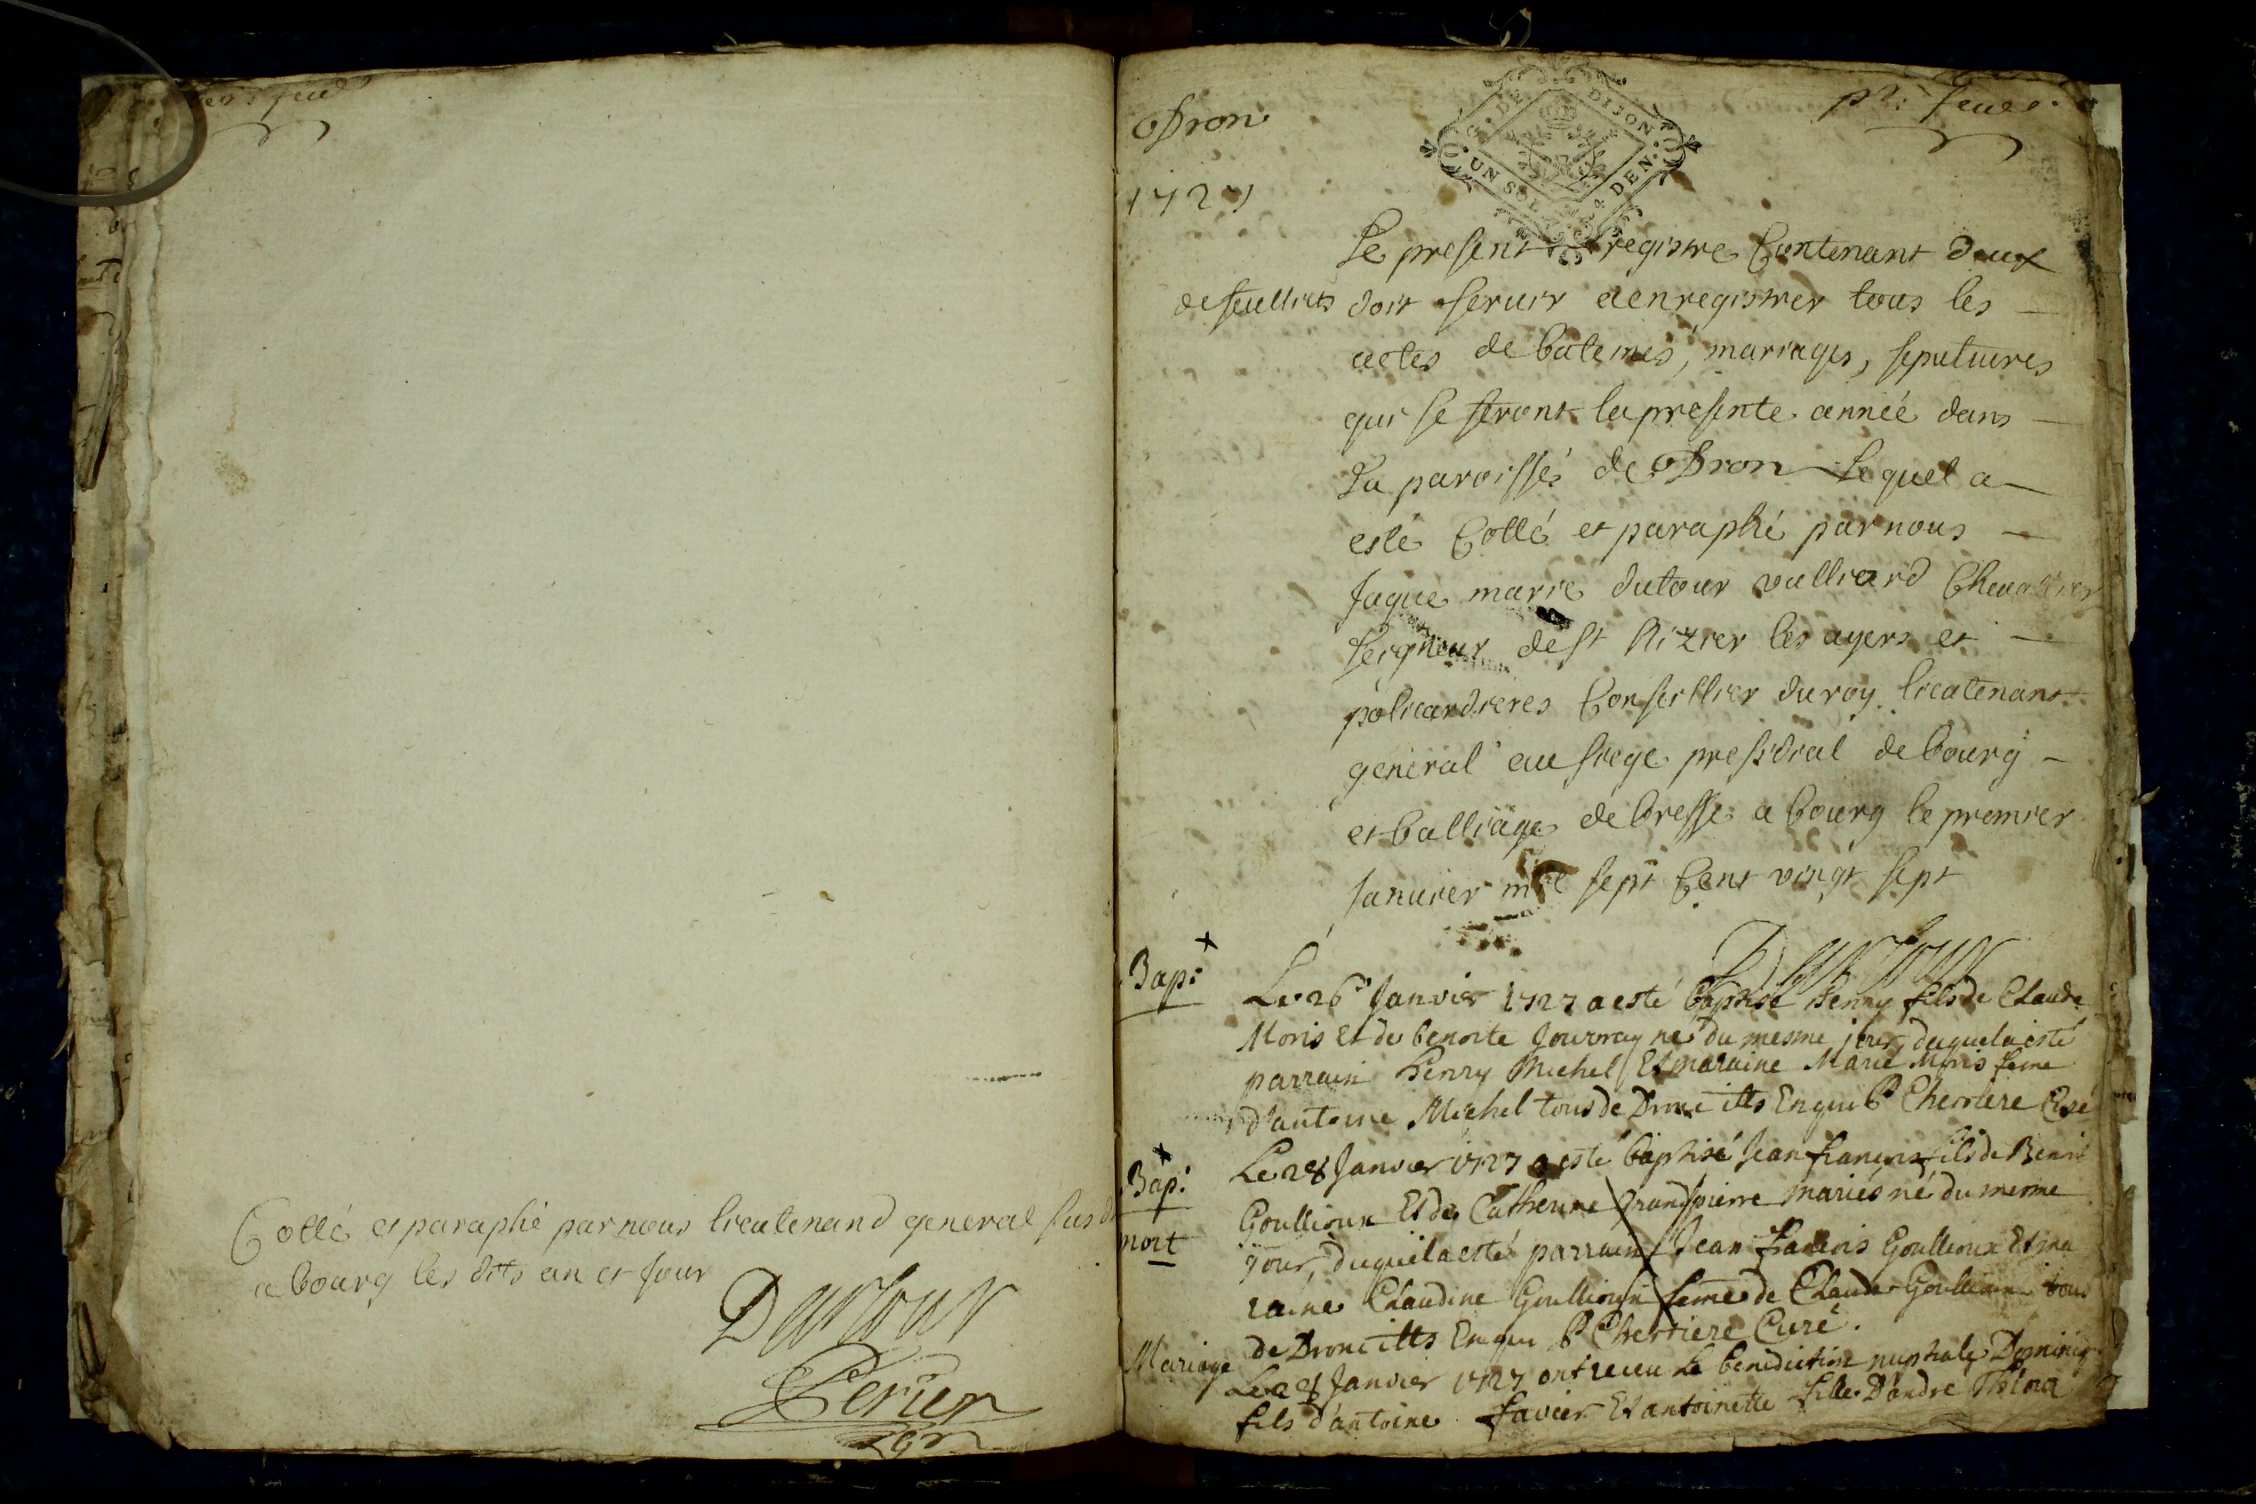 Cotté et paraphé par nous lieutenand general sus d
a bourg les dits an et jour
Dutour
Perier
Dron
1727
G. DE DIJON
UN SOL 4 DEN.
pr. feuil.
Le present registre Contenant deux
de feulliets doit servir a enregistrer tous les
actes de batemes, mariages, sepultures
qui se feront la presente année dans
La paroisse de Dron Lequel a
esté Cotté et paraphé par nous
Jaque marie dutour vulliard Chevallier
seigneur de st Nizier les ayers et
policardieres Conseillier du roy lieutenant
general au siege presidial de bourg
et balliage de bresse a bourg le premier
Janvier mil sept Cent vingt sept
Dutour
Bap:
Le 26e Janvier 1727 a esté baptisé henry fils de Claude
Moris Et de benoite Jouvray né du mesme jour, duquel a esté
parrain henry Michel Et maraine Marie Moris feme
d'antoine Michel tous de Dron illts Enquis P Cherriere Curé
Bap:
mort
Le 28 Janvier 1727 a esté baptisé Jean francois fils de Benoit
Goullioux Et de Catherine grandpierre mariés né du mesme
jour, duquel a esté parrain Jean francois Goullioux Et ma
raine Claudine Goullioux feme de Claude Goullioux tous
de Dron illts Enquis P Cherriere Curé.
Mariage
Le 28 Janvier 1727 ont receu la benediction nuptiale Dominiq
fils d'antoine favier Et antoinette fille D'andré